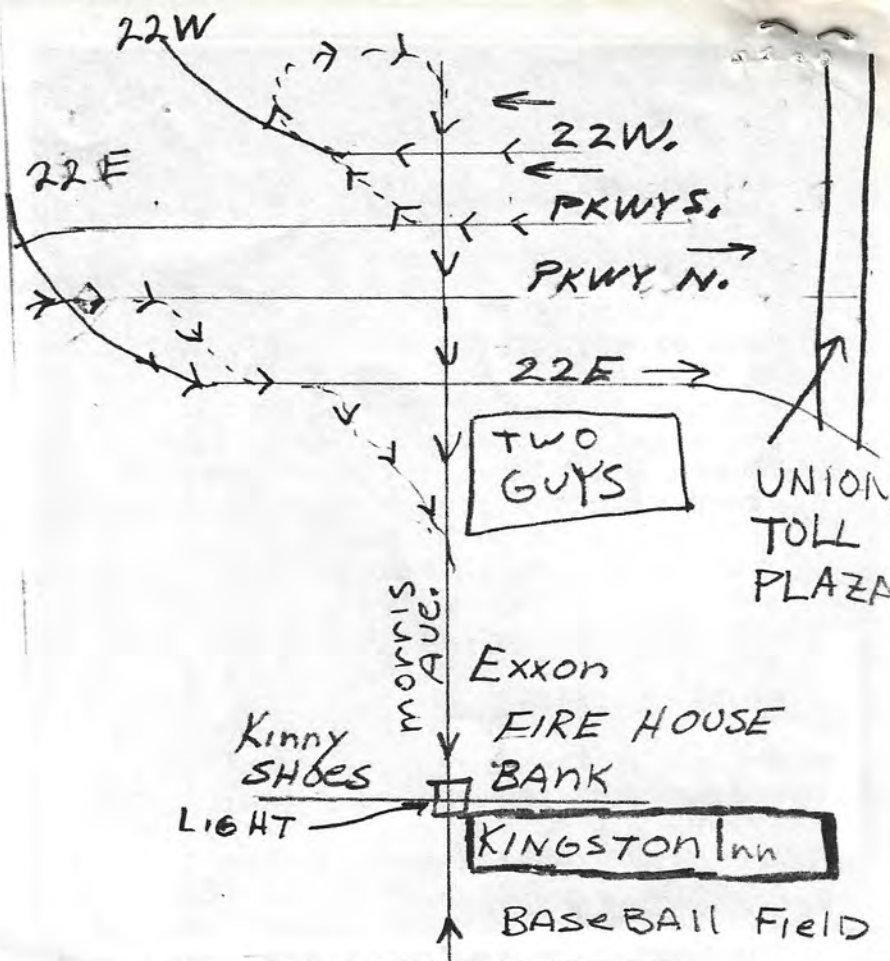 22W
22W.
22E
PKWYS.
PKWY N.
22E
TWO
GUYS
UNION
TOLL
PLAZA
morris
AVE.
Exxon
Kinny
SHOES
FIRE HOUSE
BANK
LIGHT
KINGSTON Inn
BASEBAll FIElD